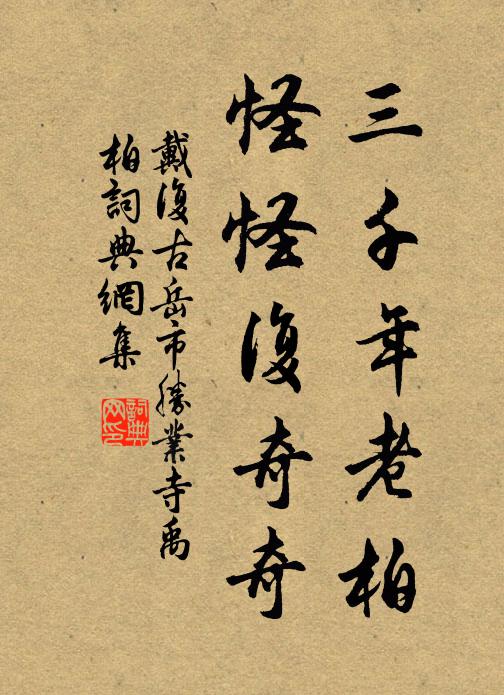 三千年老柏
怪怪復奇奇
戴復古岳市勝業寺禹
柏詞典網集
詞典
网印